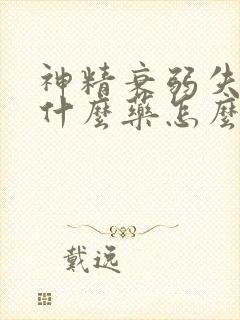 神精衰弱失
什麼藥怎麼
戴逸